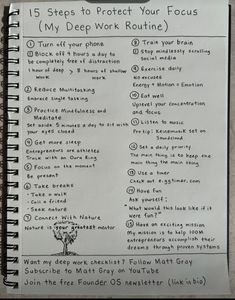 15 Steps to Protect Your Focus
(My Deep Work Routine)
① Turn off your phone
Block off 4 hours a day to
be completely free of distraction
1 hour of deep work > 8 hours of shallow work
② Reduce Multitasking
Embrace single tasking
③ Practice Mindfulness and
Meditate
Set aside 5 minutes a day to sit with
your eyes closed
④ Get more sleep
Entrepreneurs are athletes
Track with an Oura Ring
⑤ Focus on the moment
Be present
⑥ Take breaks
- Take a walk
- Call a friend
- Seek nature
⑦ Connect With Nature
Nature is your greatest mentor
⑧ Train your brain
Stop mindlessly scrolling
social media
⑨ Exercise daily
No excuses
Energy = Motion = Emotion
⑩ Eat well
Uplevel your concentration
and focus
⑪ Listen to music
Pro tip:
on
Soundcloud
⑫ Set a daily priority
The main thing is to keep the
main thing the main thing
⑬ Use a timer
Check out e.ggtimer.com
⑭ Have fun
Ask yourself:
"What would this look like if it
were fun?"
⑮ Have an exciting mission
My mission is to help 100M
entrepreneurs accomplish their
dreams through proven systems
Want my deep work checklist? Follow Matt Gray
Subscribe to Matt Gray on YouTube
Join the free Founder OS newsletter (link is bio)